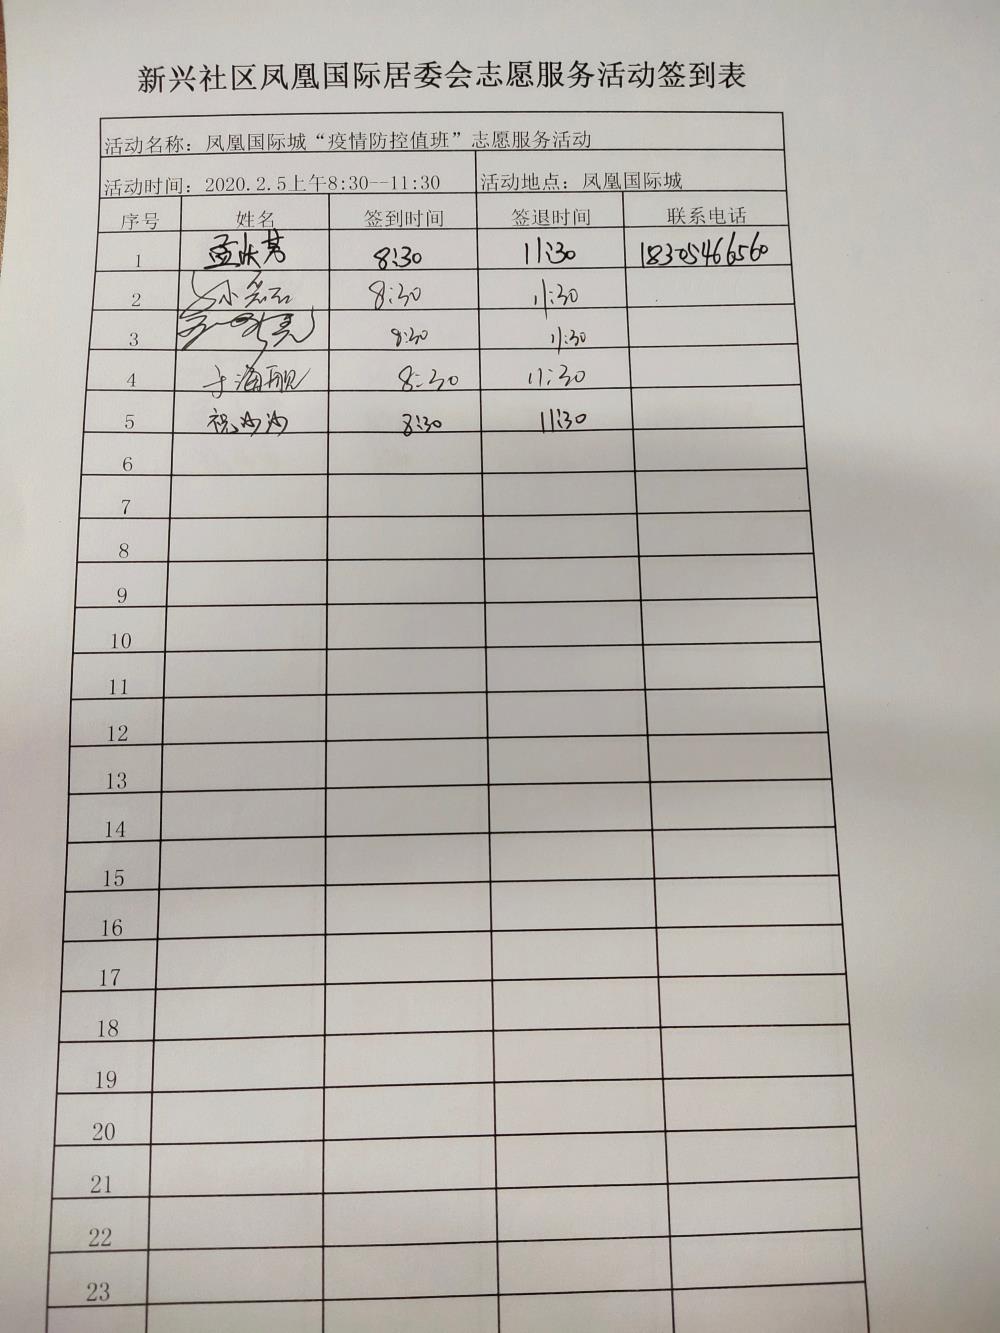 新兴社区凤凰国际居委会志愿服务活动签到表
活动名称：凤凰国际城“疫情防控值班”志愿服务活动
活动时间：2020.2.5上午8:30--11:30 活动地点：凤凰国际城
序号 姓名 签到时间 签退时间 联系电话
1 8:30 11:30 18305466560
2 8:30 11:30
3 8:30 11:30
4 于海 8:30 11:30
5 祝沙沙 8:30 11:30
6
7
8
9
10
11
12
13
14
15
16
17
18
19
20
21
22
23